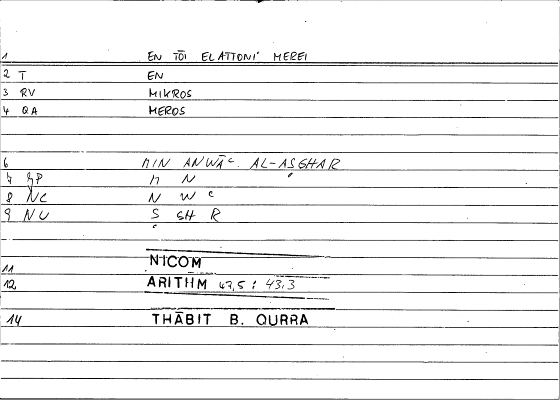 1 EN TŌI ELATTONI MEREI
2 T EN
3 RV MIKROS
4 QA MEROS
6 MIN ANWĀʿ AL-AṢGHAR
7 GP M N
8 NC N W ʿ
9 NU Ṣ GH R
11 NICOM
12 ARITHM 47,5 : 43,3
14 THĀBIT B. QURRA